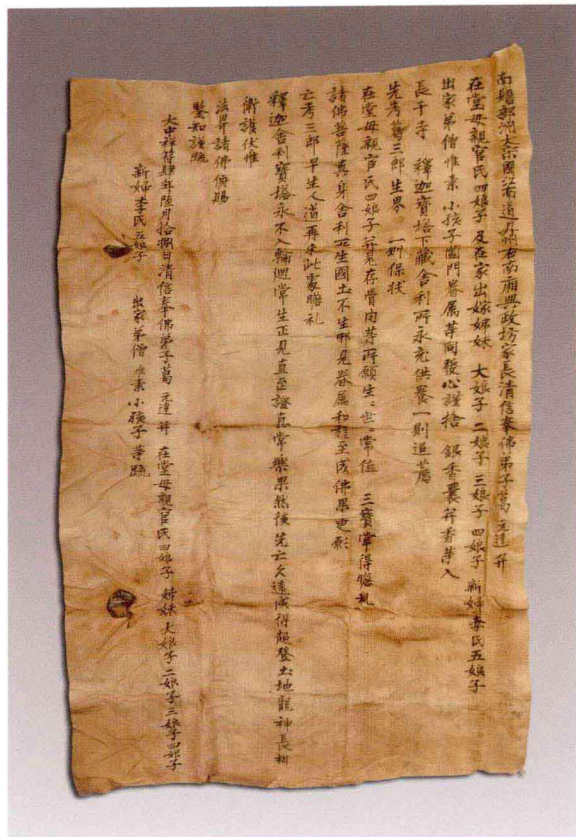 南贍部洲大宗國江南道昇州右南廂興政坊家長清信奉佛弟子葛元達并
在堂母親官氏四娘子及在家出嫁姊妹 大娘子 二娘子 三娘子 四娘子 新婦李氏五娘子
出家弟僧惟素 小孩子闔門眷属等同發心謹捨 銀香囊并香等入
長干寺 釋迦寶塔下藏舍利所永充供養一則追薦
先考葛三郎生界 一則保扶
在堂母親官氏四娘子并見存骨肉等所願生〻世〻常值 三寶常得瞻礼
諸佛菩薩真身舍利所生國土不生邪見眷属和程至成佛果更願
亡考三郎早生人道再來此處瞻礼
釋迦舍利寶塔永不入輪迴常生正見直至證真常樂果然後先亡久遠咸得超登土地龍神長相
衛護伏惟
法界諸佛俯賜
鑒知謹疏
大中祥符肆年陸月拾捌日清信奉佛弟子葛元達并 在堂母親官氏四娘子 姊妹 大娘子二娘子三娘子四娘子
新婦李氏五娘子 出家弟僧惟素小孩子等疏